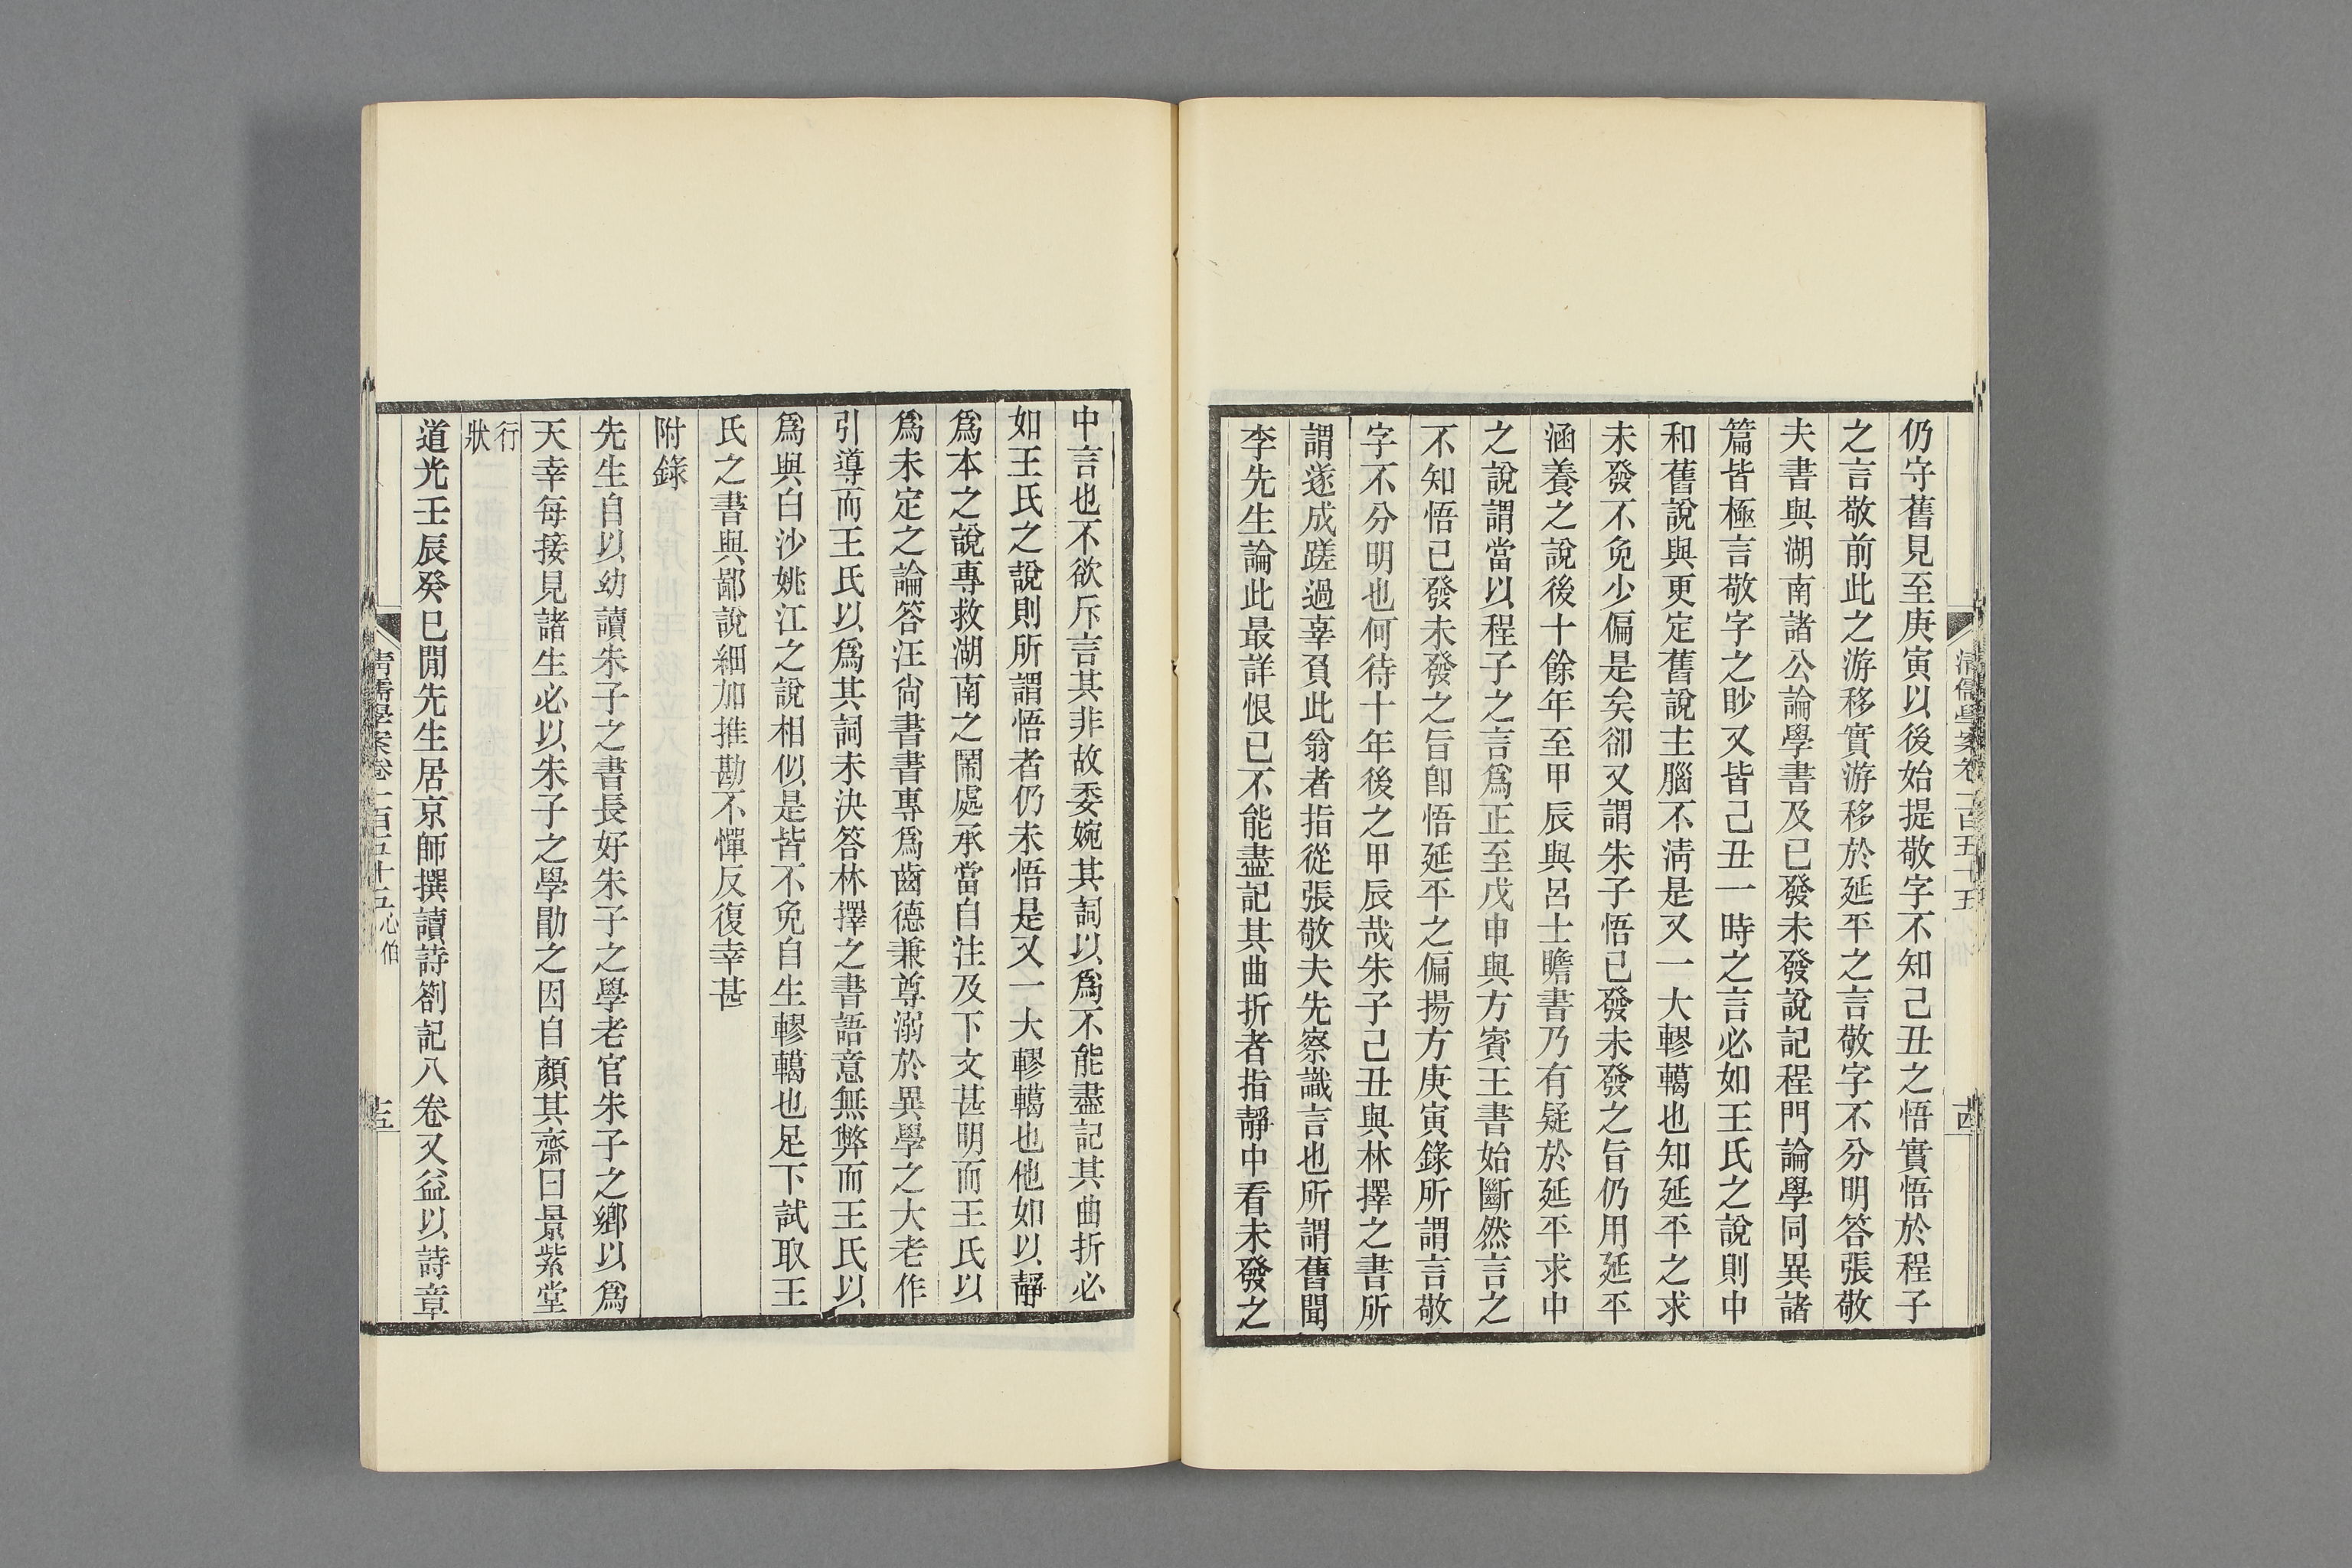 清儒學案卷一百五十五
十四
仍守舊見至庚寅以後始提敬字不知己丑之悟實悟於程子
之言敬前此之游移實游移於延平之言敬字不分明答張敬
夫書與湖南諸公論學書及已發未發說記程門論學同異諸
篇皆極言敬字之眇又皆己丑一時之言必如王氏之說則中
和舊說與更定舊說主腦不淸是又一大轇轕也知延平之求
未發不免少偏是矣卻又謂朱子悟已發未發之旨仍用延平
涵養之說後十餘年至甲辰與呂士瞻書乃有疑於延平求中
之說謂當以程子之言爲正至戊申與方賓王書始斷然言之
不知悟已發未發之旨卽悟延平之偏揚方庚寅錄所謂言敬
字不分明也何待十年後之甲辰哉朱子己丑與林擇之書所
謂遂成蹉過辜負此翁者指從張敬夫先察識言也所謂舊聞
李先生論此最詳恨已不能盡記其曲折者指靜中看未發之
中言也不欲斥言其非故委婉其詞以爲不能盡記其曲折必
如王氏之說則所謂悟者仍未悟是又一大轇轕也他如以靜
爲本之說專救湖南之鬧處承當自注及下文甚明而王氏以
爲未定之論答汪尙書書專爲齒德兼尊溺於異學之大老作
引導而王氏以爲其詞未決答林擇之書語意無弊而王氏以
爲與白沙姚江之說相似是皆不免自生轇轕也足下試取王
氏之書與鄙說細加推勘不憚反復幸甚
附錄
先生自以幼讀朱子之書長好朱子之學老官朱子之鄉以爲
天幸每接見諸生必以朱子之學勖之因自顏其齋曰景紫堂
行狀
道光壬辰癸巳閒先生居京師撰讀詩劄記八卷又益以詩章
清儒學案卷一百五十五 心伯
十五